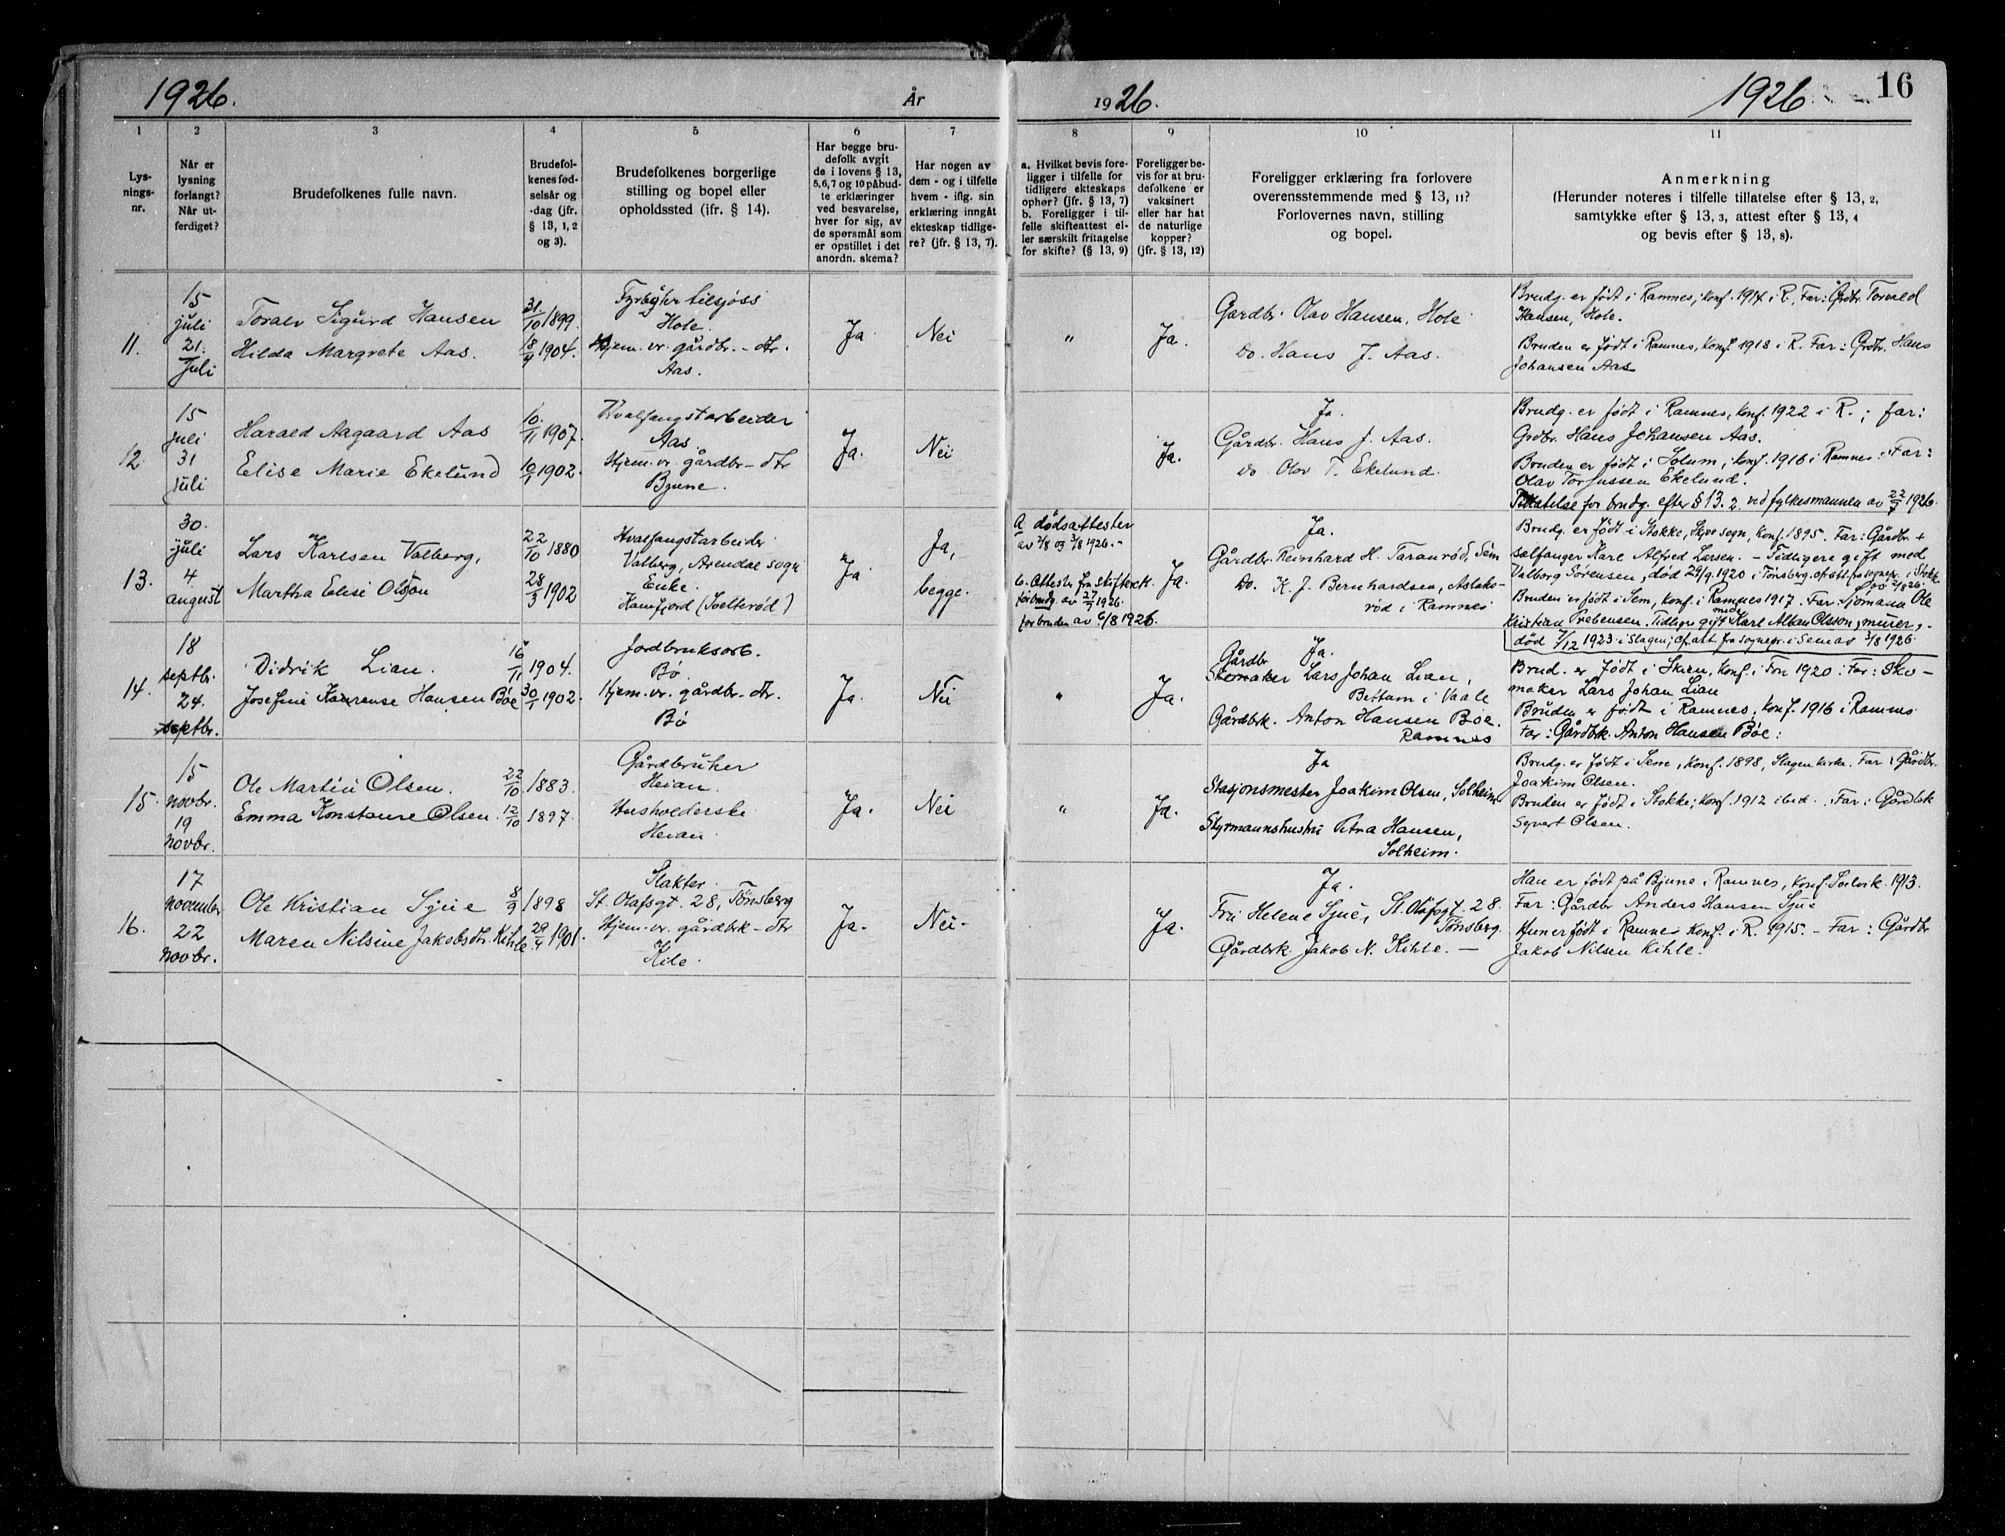 1926.
År
1926.
1926.
16
1
2
3
4
5
6
7
8
9
10
11
Lys-
nings-
nr.
Når er
lysning
forlangt?
Når ut-
ferdiget?
Brudefolkenes fulle navn.
Brudefol-
kenes fød-
selsår og
-dag (jfr.
§ 13, 1, 2
og 3).
Brudefolkenes borgerlige
stilling og bopel eller
opholdssted (ifr. § 14).
Har begge bru-
defolk avgit
de i lovens § 13,
5, 6, 7 og 10 påbud-
te erklæringer
ved besvarelse,
hver for sig, av
de spørsmål som
er opstillet i det
anordn. skema?
Har nogen av
dem - og i tilfelle
hvem - iflg. sin
erklæring inngåt
ekteskap tidlige-
re? (jfr. § 13, 7).
a. Hvilket bevis fore-
ligger i tilfelle for
tidligere ekteskaps
ophør? (jfr. § 13, 7)
b. Foreligger i til-
felle skifteattest el-
ler særskilt fritagelse
for skifte? (§ 13, 9)
Foreligger be-
vis for at bru-
defolkene er
vaksinert
eller har hat
de naturlige
kopper?
(jfr. § 13, 12)
Foreligger erklæring fra forlovere
overensstemmende med § 13, 11?
Forlovernes navn, stilling
og bopel.
Anmerkning
(Herunder noteres i tilfelle tillatelse efter § 13, 2,
samtykke efter § 13, 3, attest efter § 13, 4
og bevis efter § 13, 8).
11.
15
juli
21.
Juli
Toralv Sigurd Hansen
Hilda Margrete Aas.
31/10 1899.
18/9 1904.
Fyrbøter tilsjøss
Hole.
Hjem. vr. gårdbr. - dtr.
Aas.
Ja
Nei
"
Ja.
Gardbr. Olav Hansen, Hole
Do. Hans J. Aas.
Brudg. er født i Ramnes, konf. 1914 i R., Far: Grdbr. Torvald
Hansen, Hole.
Bruden er født i Ramnes, konf. 1918 i R. Far: Grdbr. Hans
Johansen Aas
12.
15
juli
31
juli
Harald Aagaard Aas
Elise Marie Ekelund
10/11 1907.
10/1 1902.
Hvalfangstarbeider
Aas
Hjem. vr. gårdbr - dtr
Bjune.
Ja.
Nei
Ja.
Ja.
Gårdbr. Hans J. Aas.
Do. Olav T. Ekelund.
Brudg. er født i Ramnes, konf. 1922 i R.; far:
Grdbr. Hans Johansen Aas.
Bruden er født i Solum, konf. 1916 i Ramnes. Far:
Olav Torjussen Ekelund.
Tillatelse for brudg. efter § 13. 2. ved fylkesmannen av 22/7 1926.
13.
30.
juli
4
august
Lars Karlsen Valberg,
Martha Elisi Olsson
22/10 1880
28/3 1902
Hvalfangstarbeider
Valberg, Arendal sogn
Enke
Ja
Ja,
begge.
a dødsattester
av 2/8 og 3/8 1926.
b. Attester fra skifterett.
for brudg. av 27/7 1926.
for bruden av 6/8 1926.
Ja.
Ja.
Gårdbr. Reinhard H. Taranrød, Sem
Do. K. J. Bernhardsen, Aslaks-
rød i Ramnes
Brudg. er født i Stokke, Skje sogn, konf. 1895. Far: Gårdbr. +
sælfanger Karl Alfred Larsen. - Tidligere gift med
Valborg Sørensen, død 29/9 1920 i Tønsberg, cf. att. fra sognepr. i Stokke
av 2/8 26.
Bruden er født i Sem, konf. i Ramnes 1917. Far: Sjømann Ole
Kristian Prebensen. Tidligere gift med Karl Alban Olsson, murer, -
død 7/12 1923 i Slagen; cf. att. fra sognepr. i Sem av 3/8 1926.
14.
18
septbr.
24.
septbr.
Didrik Lian.
Josefine Kaurense Hansen Bøe
16/11 1904.
30/1 1902.
Jordbruksarb.
Bø.
Hjem. vr. gårdbr. dtr.
Bø
Ja.
Nei
"
Ja.
Ja.
Gårdbr
Skomaker Lars Johan Lian,
Bettum i Vaale
Gårdbrk. Anton Hansen Bøe.
Ramnes
Brud. er født i Skien, konf. i Fon 1920. Far: Sko-
maker Lars Johan Lian
Bruden er født i Ramnes, konf. 1916 i Ramnes
Far: Gårdbrk. Anton Hansen Bøe:
15.
15
novbr.
19
novbr.
Ole Martin Olsen.
Emma Konstanse Olsen.
22/10 1883.
12/10 1897.
Gårdbruker
Heian.
Husholderske
Heian.
Ja.
Nei
"
Ja.
Ja
Stasjonsmester Joakim Olsen, Solheim
Styrmannshustru Petra Hansen,
Solheim.
Brudg. er født i Sem, konf. 1898, Slagen kirke. Far: Gårdbr.
Joakim Olsen.
Bruden er født i Stokke, konf. 1912 ibid. Far: Gårdbrk
Syvert Olsen.
16.
17
november
22
novbr.
Ole Kristian Sjue
Maren Nilsine Jakobsdtr. Kihle
8/9 1898
29/4 1901.
Slakter.
St. Olafsgt. 28, Tønsberg
Hjem. vr. gårdbrk - dtr
Kile.
Ja.
Nei.
Ja.
Ja.
Fru Helene Sjue, St. Olafsgt. 28.
Tønsberg.
Gårdbrk. Jakob N. Kihle. -
Han er født på Bjune i Ramnes, konf. Solvik. 1913.
Far: Gårdbr Anders Hansen Sjue
Hun er født i Ramnes konf. i R. 1915. - Far: Gårdbr
Jakob Nilsen Kihle.